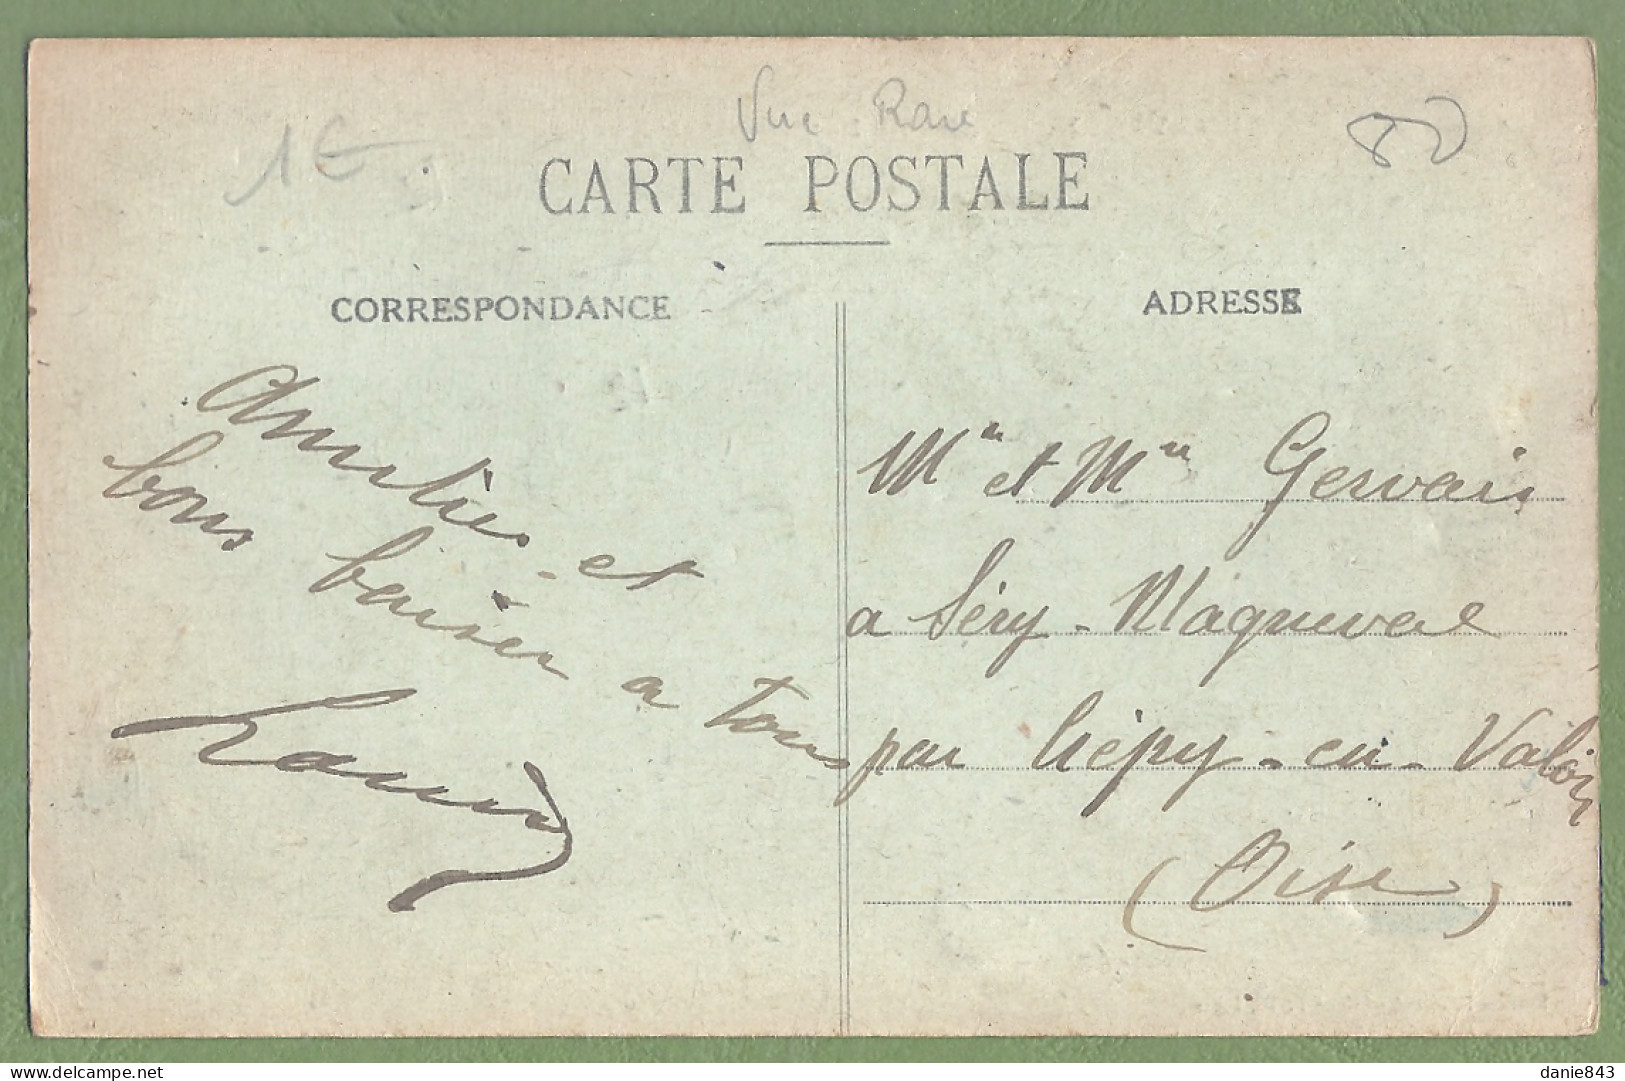 1€
Vue Rare
80
CARTE POSTALE
CORRESPONDANCE
ADRESSE
Amitiés et
bons baiser a tous
Mr et Mme Gervais
a Séry-Magneval
par Crépy-en-Valois
(Oise)
danie843
delcampe.net